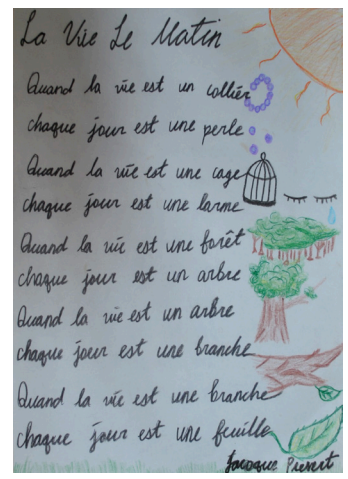 La Vie Le Matin
Quand la vie est un collier
chaque jour est une perle
Quand la vie est une cage
chaque jour est une larme
Quand la vie est une forêt
chaque jour est un arbre
Quand la vie est un arbre
chaque jour est une branche
Quand la vie est une branche
chaque jour est une feuille
Jacaque Prevert